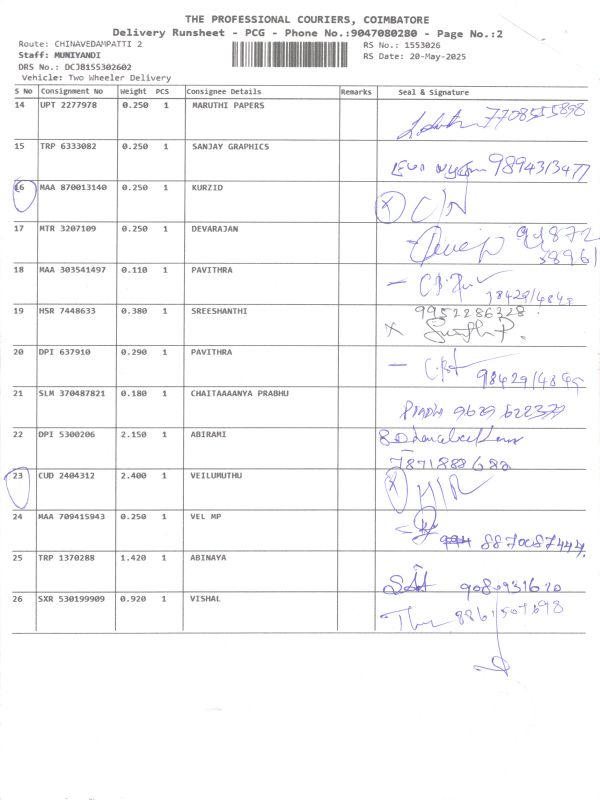 THE PROFESSIONAL COURIERS, COIMBATORE
Delivery Runsheet - PCG - Phone No.:9047080280 - Page No.:2
Route: CHINAVEDAMPATTI 2 RS No.: 1553026
Staff: MUNIYANDI RS Date: 20-May-2025
DRS No.: DCJB155302602
Vehicle: Two Wheeler Delivery
S No Consignment No Weight PCS Consignee Details Remarks Seal & Signature
14 UPT 2277978 0.250 1 MARUTHI PAPERS 7708555898
15 TRP 6333082 0.250 1 SANJAY GRAPHICS 9894313477
16 MAA 870013140 0.250 1 KURZID X
17 MTR 3207109 0.250 1 DEVARAJAN
18 MAA 303541497 0.110 1 PAVITHRA
19 HSR 7448633 0.380 1 SREESHANTHI 9952286328
X
20 DPI 637910 0.290 1 PAVITHRA
21 SLM 370487821 0.180 1 CHAITAAAANYA PRABHU
22 DPI 5300206 2.150 1 ABIRAMI
23 CUD 2404312 2.400 1 VEILUMUTHU X
24 MAA 709415943 0.250 1 VEL MP 8870087444
25 TRP 1370288 1.420 1 ABINAYA
26 SXR 530199909 0.920 1 VISHAL